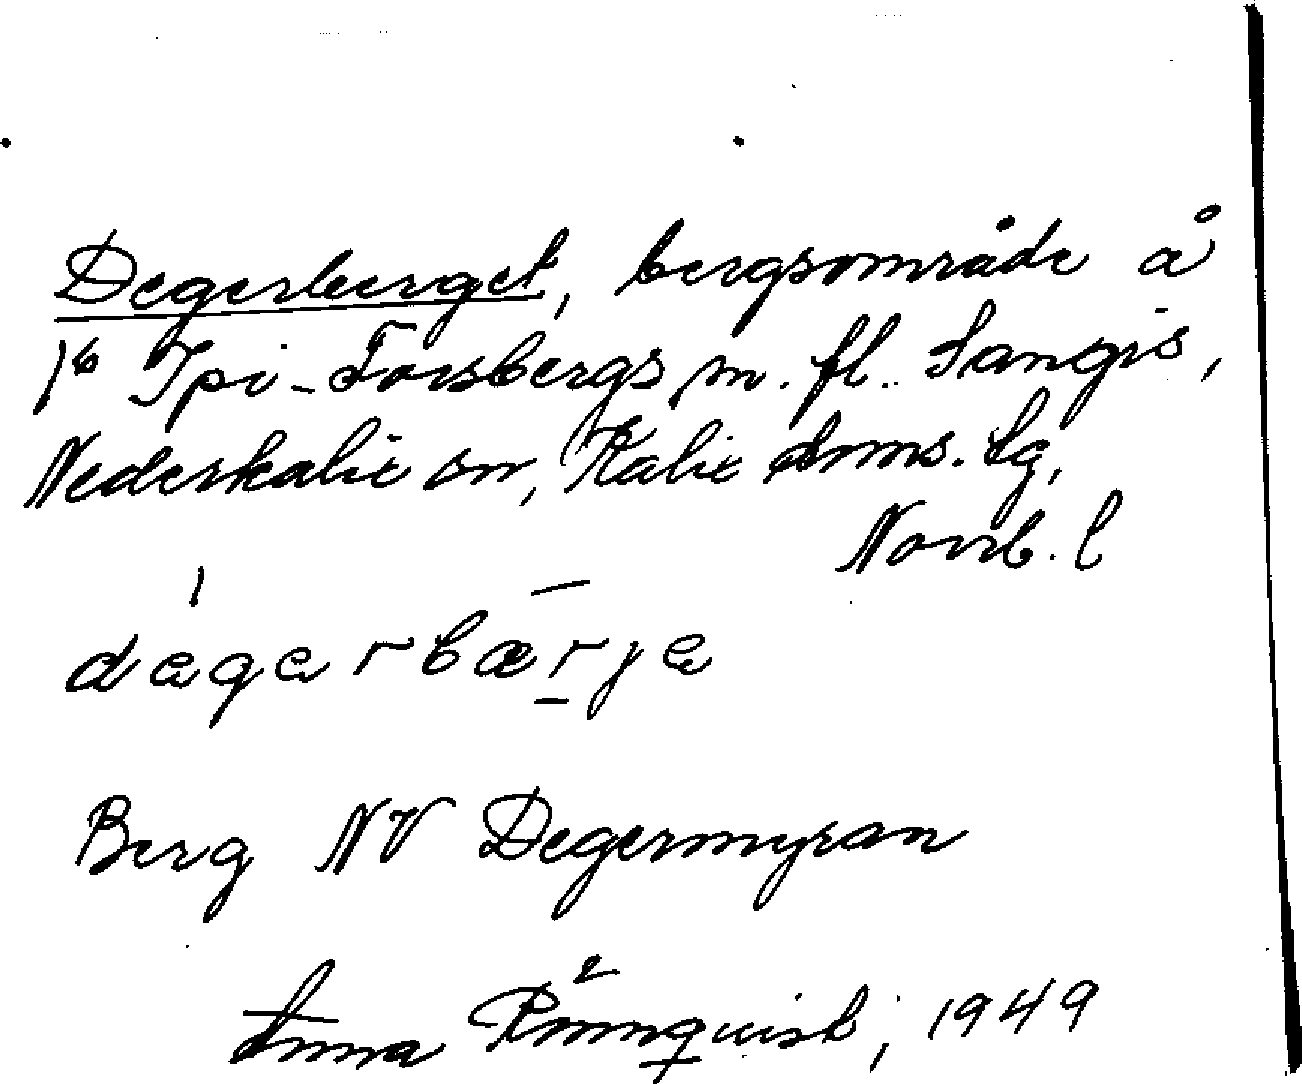 Degerberget, bergsområde å
1⁶ Ipi-Forsbergs m. fl. Sangis,
Nederkalix sn, Kalix doms. lg,
Norrb. l
degerbærje
Berg NV Degermyran
Anna Rönnquist, 1949